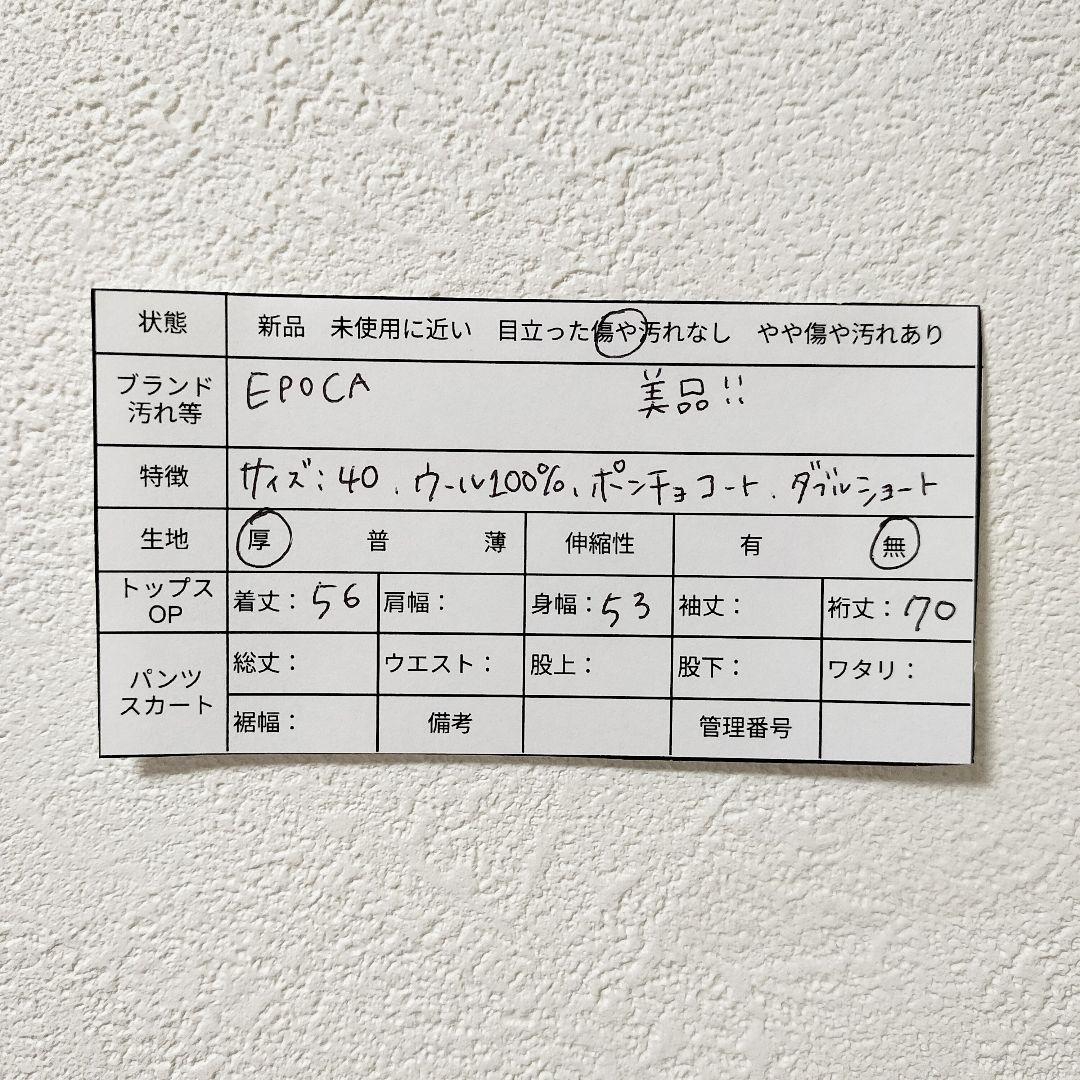 状態 新品 未使用に近い 目立った傷や汚れなし やや傷や汚れあり
ブランド
汚れ等 EPOCA 美品!!
特徴 サイズ:40、ウール100%、ポンチョコート、ダブルショート
生地 厚 普 薄 伸縮性 有 無
トップス
OP 着丈:56 肩幅: 身幅:53 袖丈: 裄丈:70
パンツ
スカート 総丈: ウエスト: 股上: 股下: ワタリ:
裾幅: 備考 管理番号